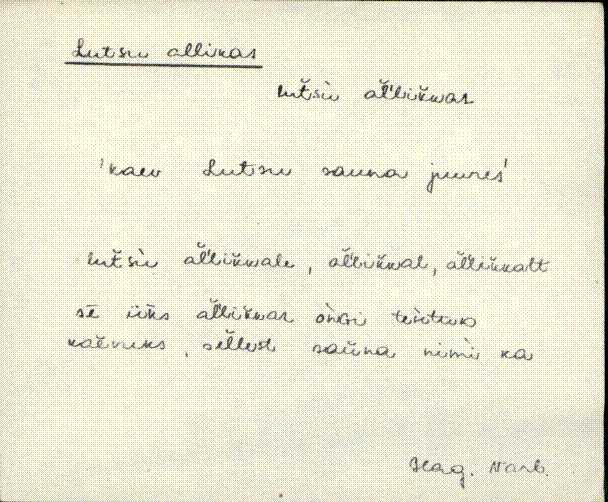 Lutsu allikas
lutsu allikkas
'kaev Lutsu sauna juures'
lutsu allikkale, allikkal, allikkalt
sē üks allikkas ońgi tehtud
kaevuks, sellest sauna nimi ka
Hag. Narb.